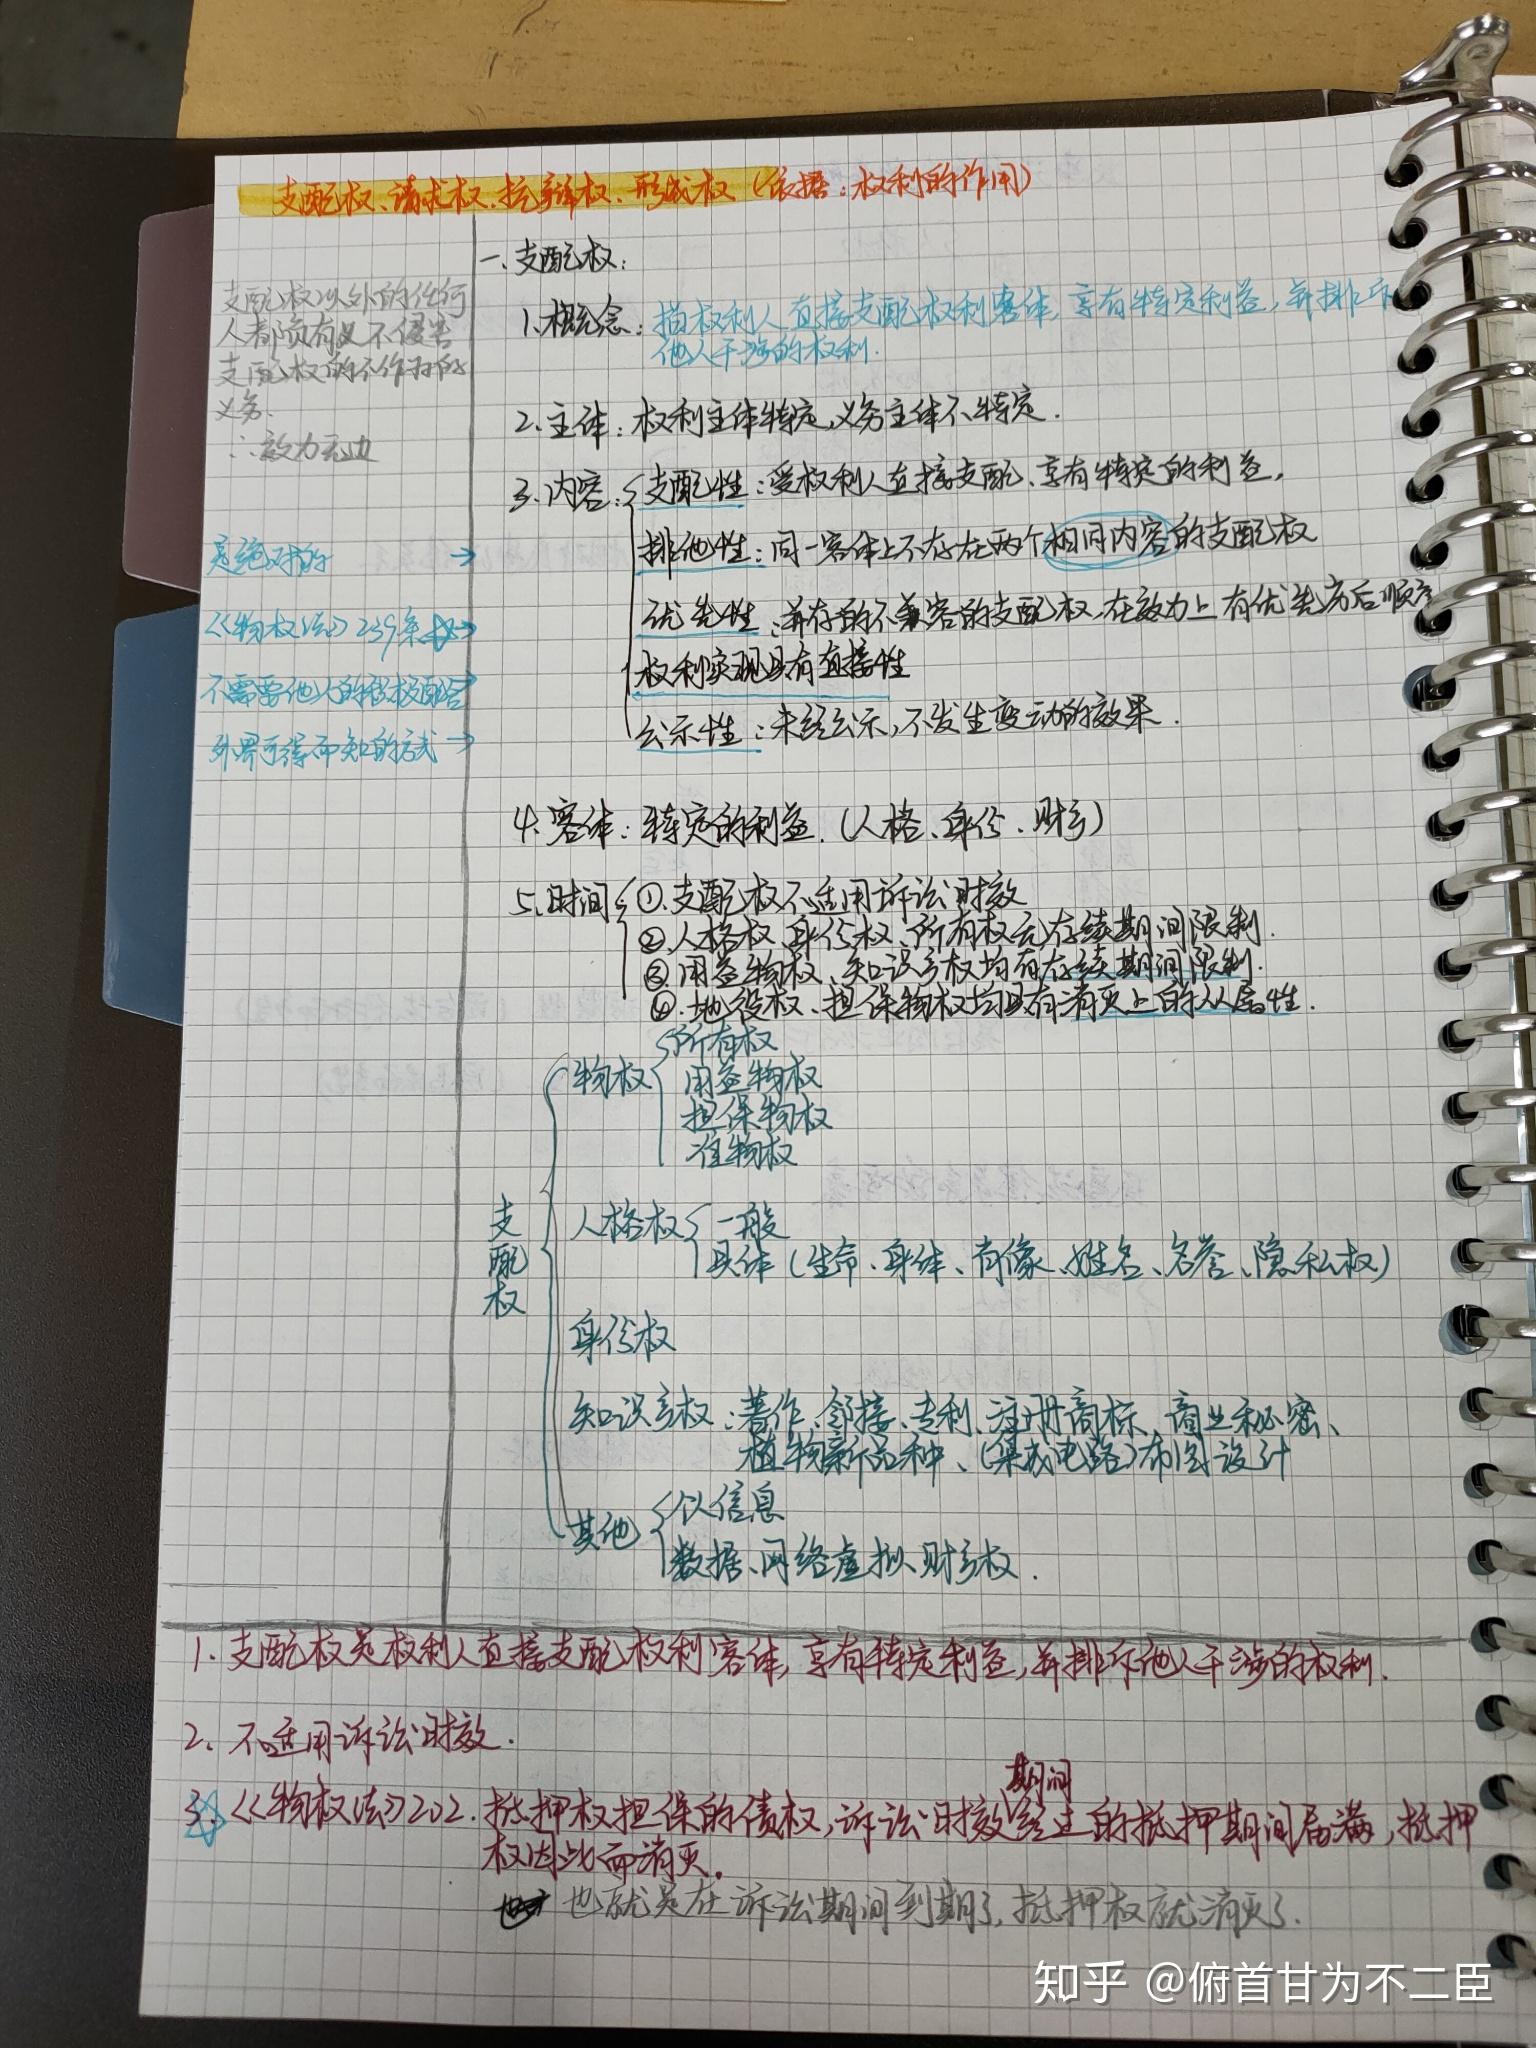 支配权、请求权、抗辩权、形成权（依据：权利的作用）
支配权以外的任何
人都须有义不侵害
支配权的不作为的
义务.
∴效力无边
是绝对的→
《物权法》239条→
不需要他人的积极配合
外界可得而知的方式→
一、支配权：
1、概念：指权利人直接支配权利客体，享有特定利益，并排斥
他人干涉的权利.
2、主体：权利主体特定，义务主体不特定.
3、内容：支配性：受权利人直接支配、享有特定的利益.
排他性：同一客体上不存在两个相同内容的支配权
优先性：并存的不兼容的支配权，在效力上有优先序后顺序
权利实现具有直接性
公示性：未经公示，不发生变动的效果.
4、客体：特定的利益.（人格、身份、财产）
5、时间 ①.支配权不适用诉讼时效
②.人格权、身份权、所有权无存续期间限制.
③.用益物权、知识产权均有存续期间限制.
④.地役权、担保物权均具有消灭上的从属性.
支配权
物权 所有权
用益物权
担保物权
准物权
人格权 一般
具体（生命、身体、肖像、姓名、名誉、隐私权）
身份权
知识产权：著作、邻接、专利、注册商标、商业秘密、
植物新品种、(集成电路)布图设计
其他 个人信息
数据、网络虚拟、财产权.
1. 支配权是权利人直接支配权利客体，享有特定利益，并排斥他人干涉的权利.
2. 不适用诉讼时效.
期间
3. 《物权法》202. 抵押权担保的债权，诉讼时效经过的抵押期间届满，抵押
权因此而消灭.
也就是在诉讼期间到期了，抵押权就消灭了.
知乎 @俯首甘为不二臣